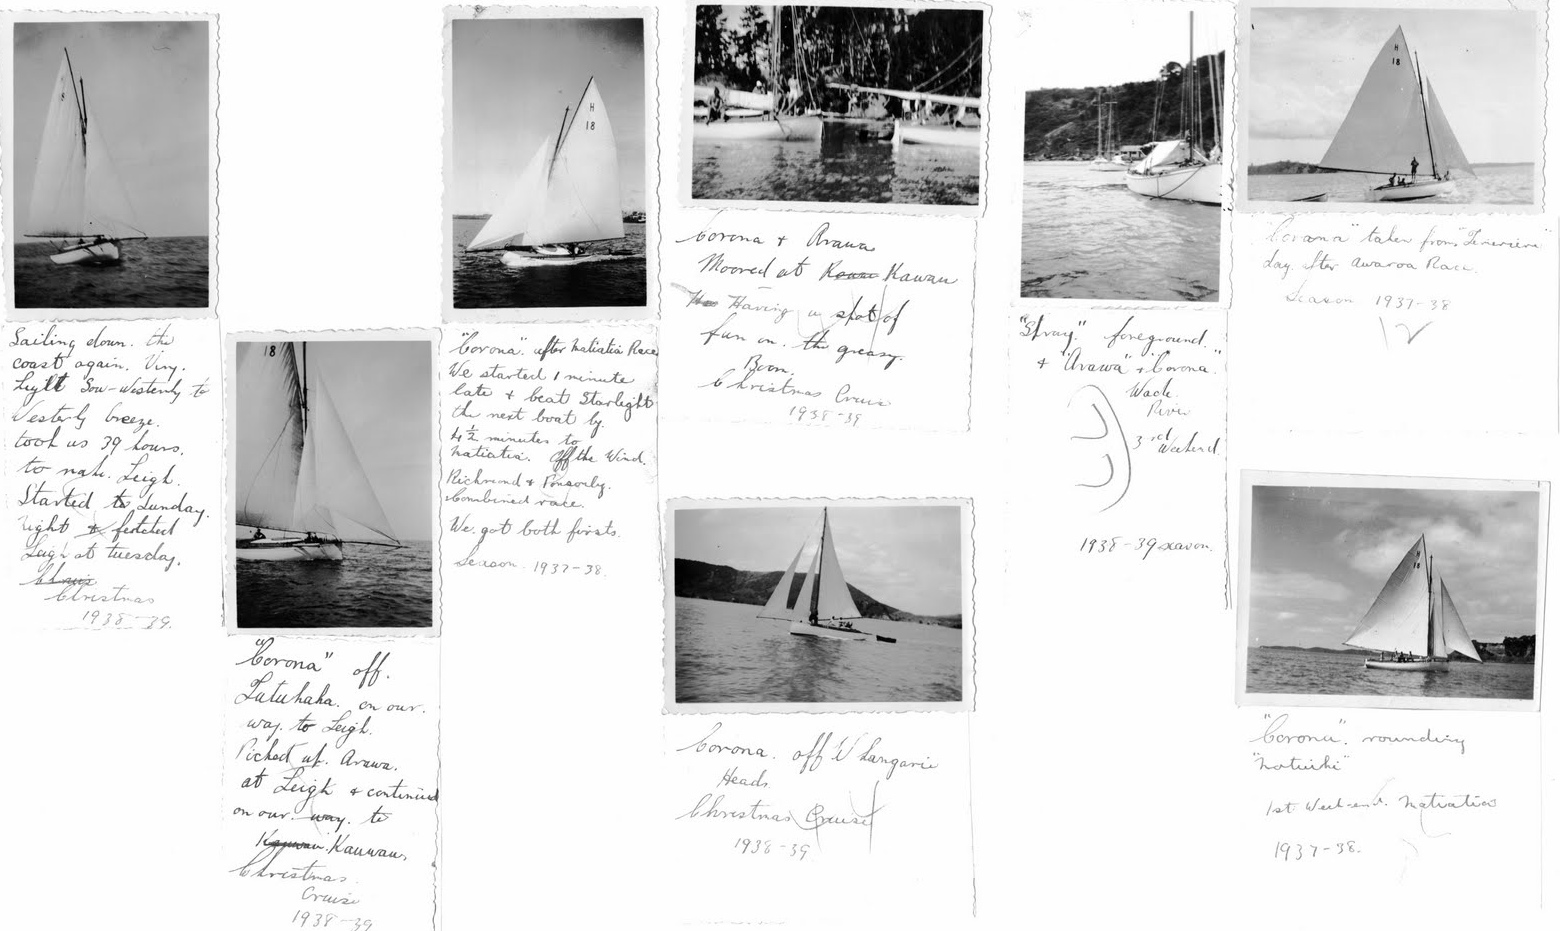 Sailing down. the
coast again. Very.
Light Sou-Westerly to
Westerly breeze.
took us 39 hours.
to Leigh.
Started to Sunday.
night & fetched
Leigh at tuesday.
Christmas
1938-39.
18
"Corona" off.
Tutukaka. on our.
way. to Leigh.
Picked up. Arawa.
at Leigh & continued
on our. way. to
Kauwau,
Christmas.
Cruise
1938-39
H
18
"Corona". after Matiatia Race
We started 1 minute
late & beat Starlight
the next boat by.
4½ minutes to
Matiatia. Off the Wind.
Richmond & Ponsonby.
Combined race.
We. got both firsts.
Season. 1937-38.
Corona & Arawa
Moored at Kawau
Having a spot of
fun on. the greasy.
Boom.
Christmas Cruise
1938-39
Corona. off Whangarie
Heads
Christmas Cruise
1938-39
"Spray" foreground.
& "Arawa" & Corona.
Wade.
River
3rd Weekend.
1938-39 season.
H
18
"Corona" taken from
day. after Awaroa Race.
Season 1937-38
H
18
"Corona". rounding
"Motuihi"
1st. Week-end. Matiatia
1937-38.